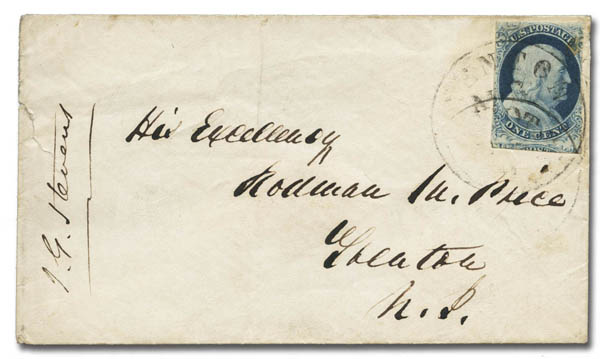 U.S. POSTAGE
ONE CENT
His Excellency
Rodman M. Price
Trenton
N. J.
J. G. Stevens